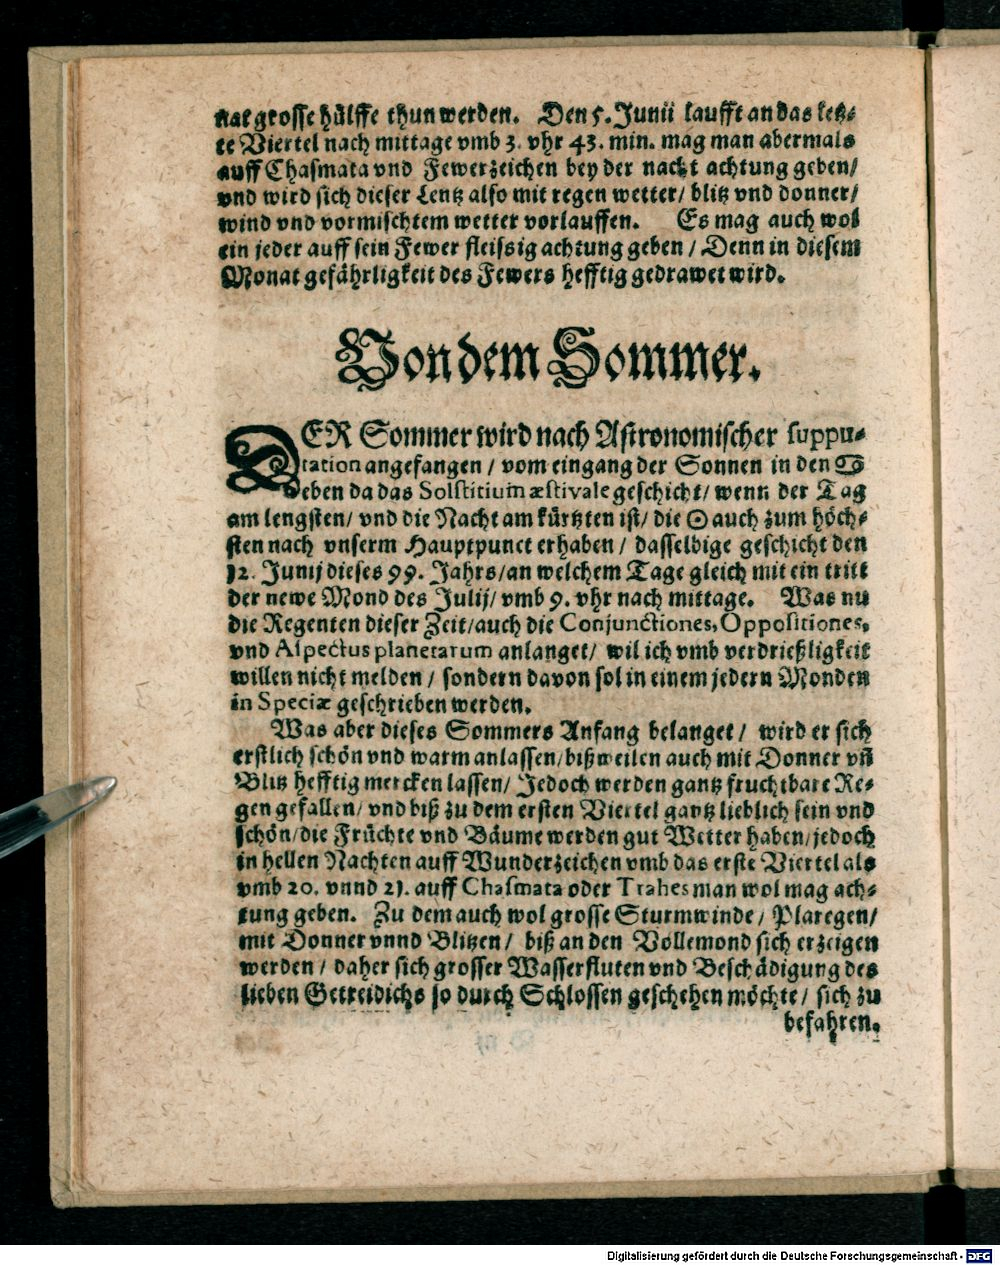 nat grosse hülffe thun werden. Den 5. Junii laufft an das letz-
te Viertel nach mittage vmb 3. vhr 43. min. mag man abermals
auff Chasmata vnd Fewerzeichen bey der nacht achtung geben/
vnd wird sich dieser Lentz also mit regen wetter/ blitz vnd donner/
wind vnd vormischtem wetter vorlauffen. Es mag auch wol
ein jeder auff sein Fewer fleissig achtung geben / Denn in diesem
Monat gefährligkeit des Fewers hefftig gedrawet wird.
Von dem Sommer.
DER Sommer wird nach Astronomischer suppu-
tation angefangen / vom eingang der Sonnen in den ♋
eben da das Solstitium æstivale geschicht/ wenn der Tag
am lengsten/ vnd die Nacht am kürtzten ist/ die ☉ auch zum höch-
sten nach vnserm Hauptpunct erhaben / dasselbige geschicht den
12. Junij dieses 99. Jahrs/ an welchem Tage gleich mit ein tritt
der newe Mond des Julij/ vmb 9. vhr nach mittage. Was nu
die Regenten dieser Zeit/ auch die Conjunctiones, Oppositiones,
vnd Aspectus planetarum anlanget/ wil ich vmb verdrießligkeit
willen nicht melden / sondern davon sol in einem jedern Monden
in Speciæ geschrieben werden.
Was aber dieses Sommers Anfang belanget/ wird er sich
erstlich schön vnd warm anlassen/ bißweilen auch mit Donner vñ
Blitz hefftig mercken lassen/ Jedoch werden gantz fruchtbare Re-
gen gefallen/ vnd biß zu dem ersten Viertel gantz lieblich sein vnd
schön/ die Früchte vnd Bäume werden gut Wetter haben/ jedoch
in hellen Nachten auff Wunderzeichen vmb das erste Viertel als
vmb 20. vnnd 21. auff Chasmata oder Trabes man wol mag ach-
tung geben. Zu dem auch wol grosse Sturmwinde / Plaregen/
mit Donner vnnd Blitzen / biß an den Vollemond sich erzeigen
werden / daher sich grosser Wasserfluten vnd Beschädigung des
lieben Getreidichs so durch Schlossen geschehen möchte/ sich zu
befahren.
Digitalisierung gefördert durch die Deutsche Forschungsgemeinschaft - DFG